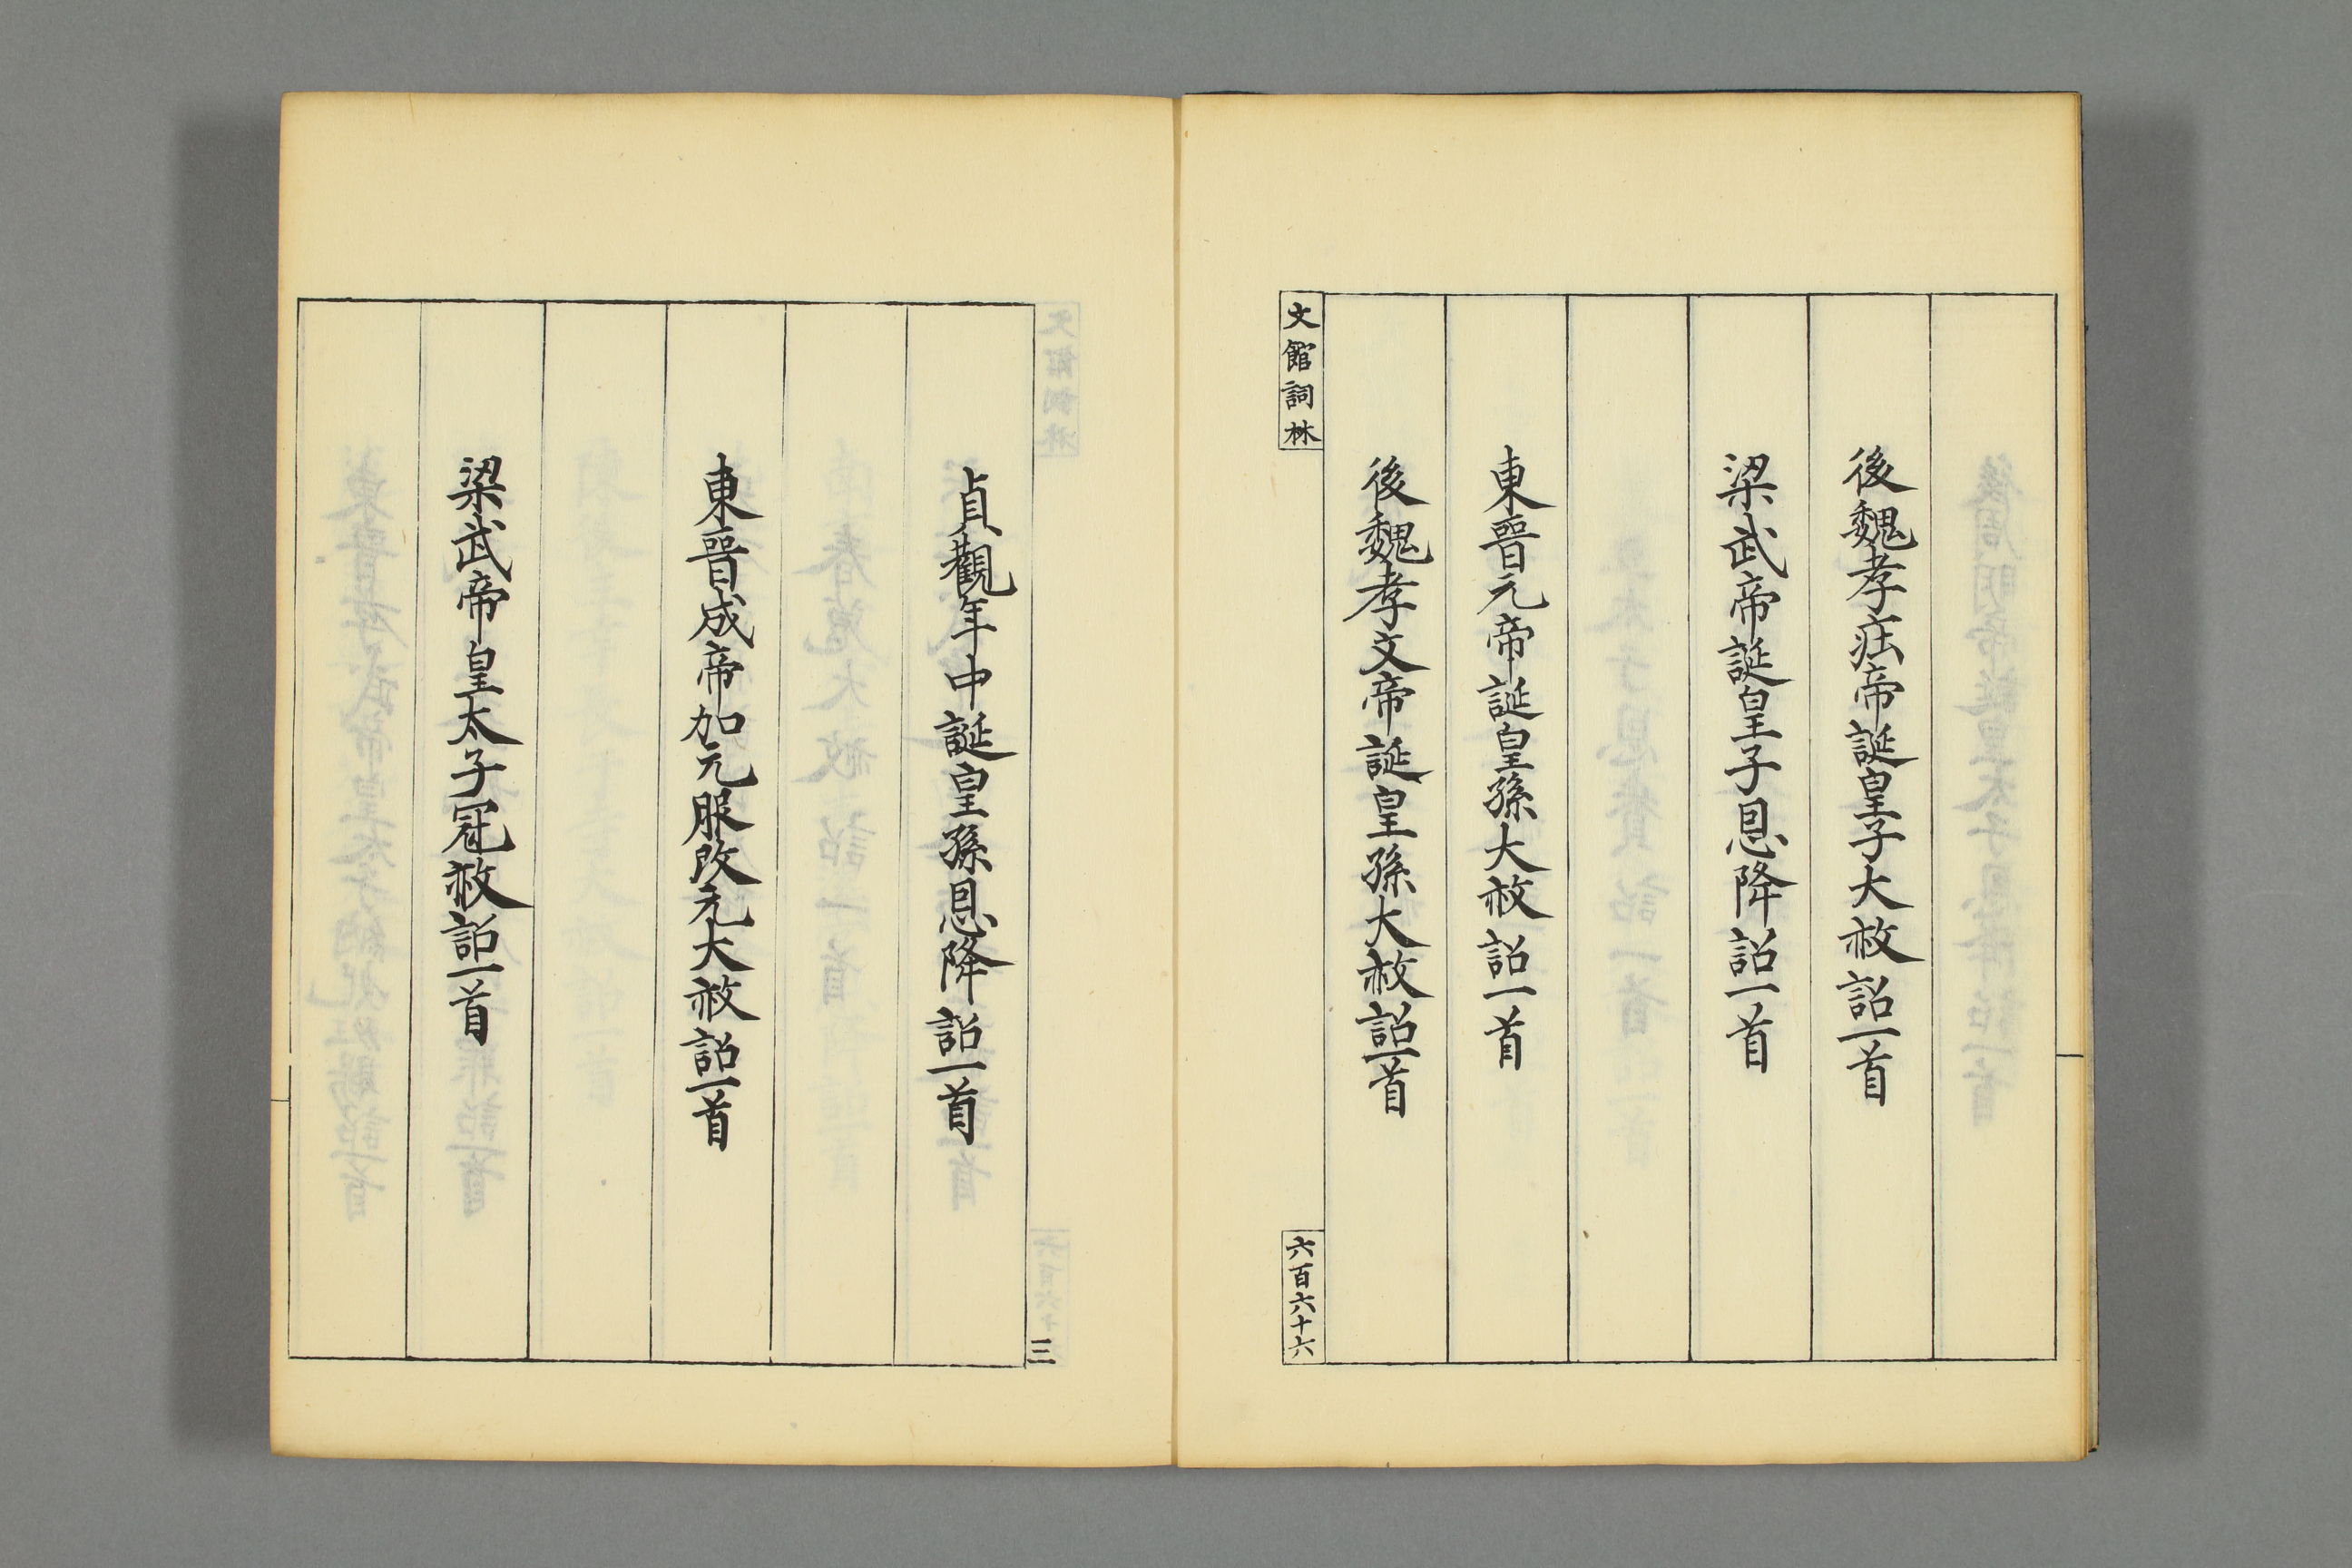 後魏孝莊帝誕皇子大赦詔一首
梁武帝誕皇子恩降詔一首
東晉元帝誕皇孫大赦詔一首
後魏孝文帝誕皇孫大赦詔一首
文館詞林
六百六十六
三
貞觀年中誕皇孫恩降詔一首
東晉成帝加元服改元大赦詔一首
梁武帝皇太子冠赦詔一首